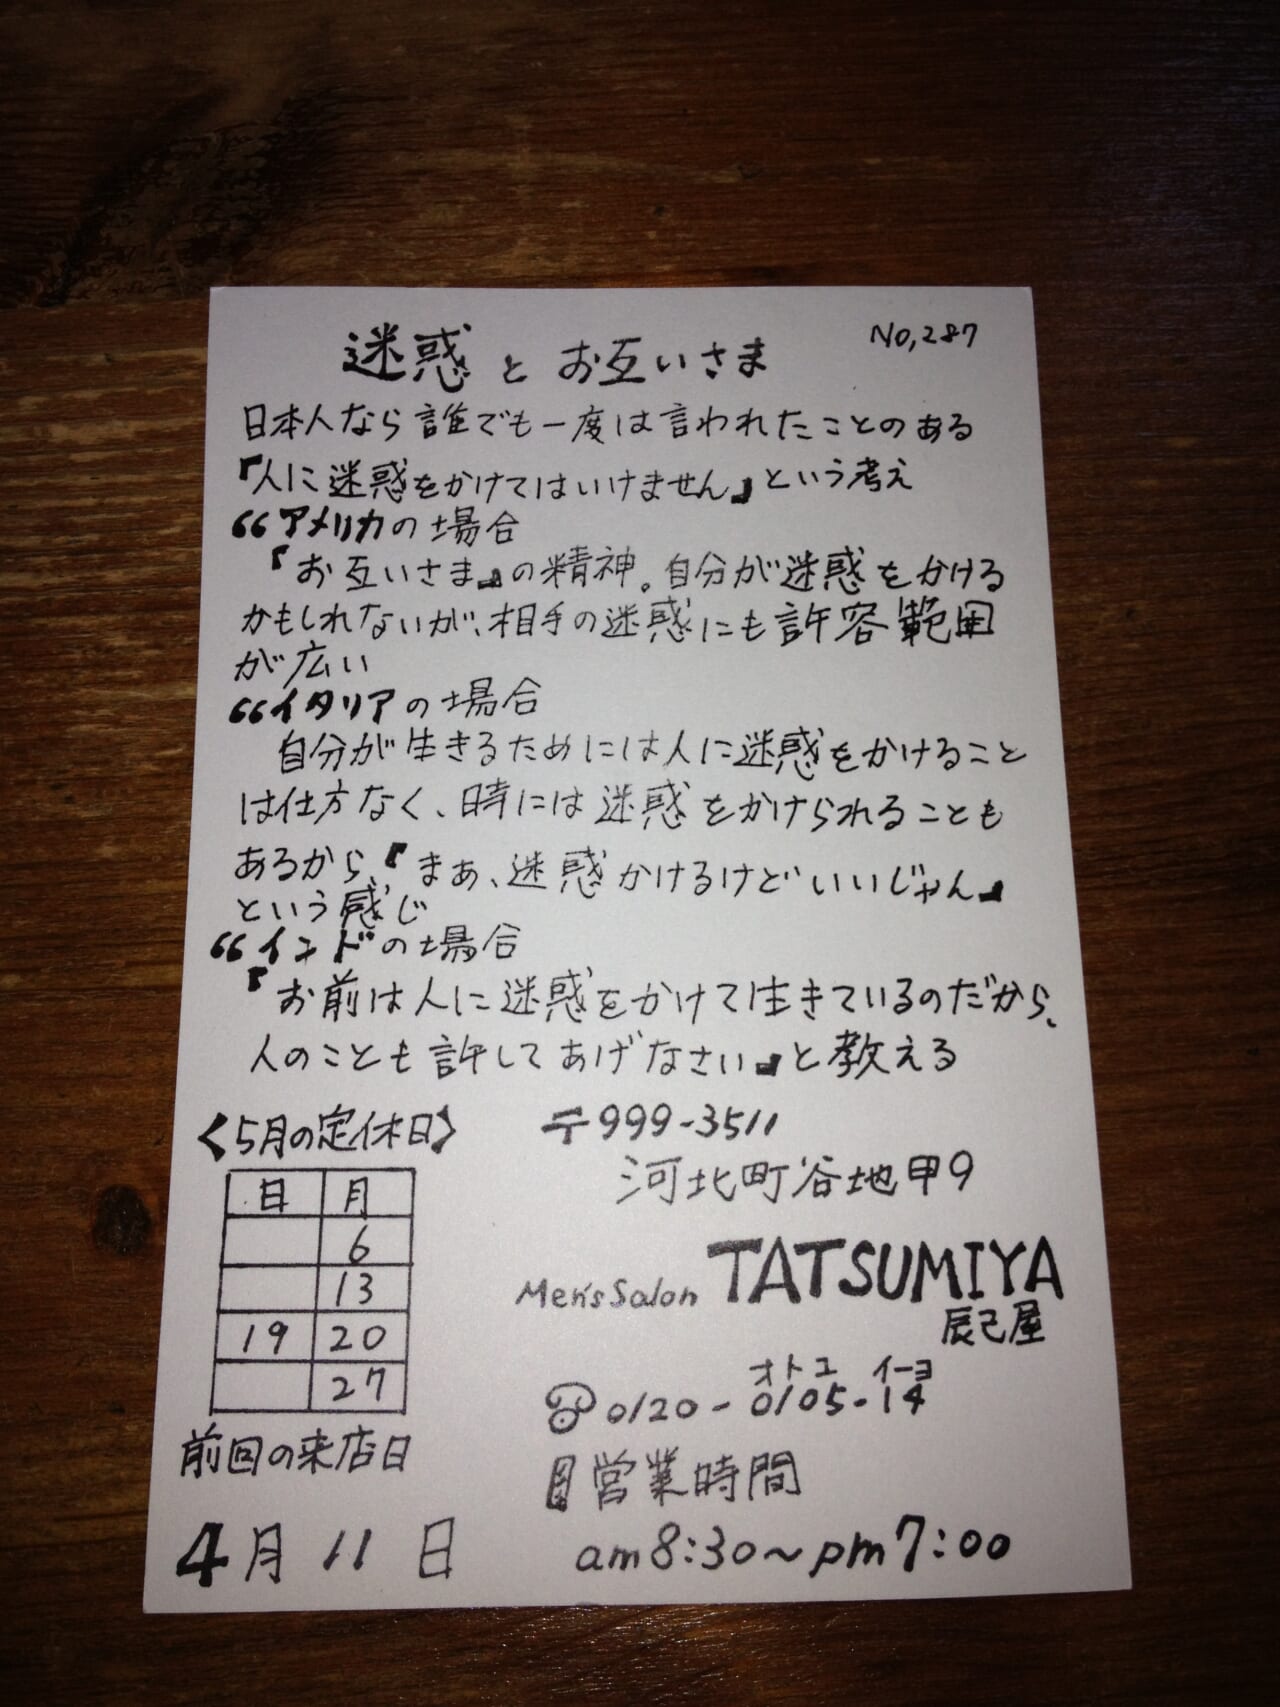 迷惑とお互いさま
No,287
日本人なら誰でも一度は言われたことのある
『人に迷惑をかけてはいけません』という考え
“アメリカの場合
『お互いさま』の精神。自分が迷惑をかける
かもしれないが、相手の迷惑にも許容範囲
が広い
“イタリアの場合
自分が生きるためには人に迷惑をかけること
は仕方なく、時には迷惑をかけられることも
あるから、『まぁ、迷惑かけるけどいいじゃん』
という感じ
“インドの場合
『お前は人に迷惑をかけて生きているのだから、
人のことも許してあげなさい』と教える
〈5月の定休日〉
日 月
6
13
19 20
27
前回の来店日
4月11日
〒999-3511
河北町谷地甲9
Men's Salon TATSUMIYA
辰己屋
オトコ イーヨ
☎0120-0105-14
営業時間
am8:30〜pm7:00